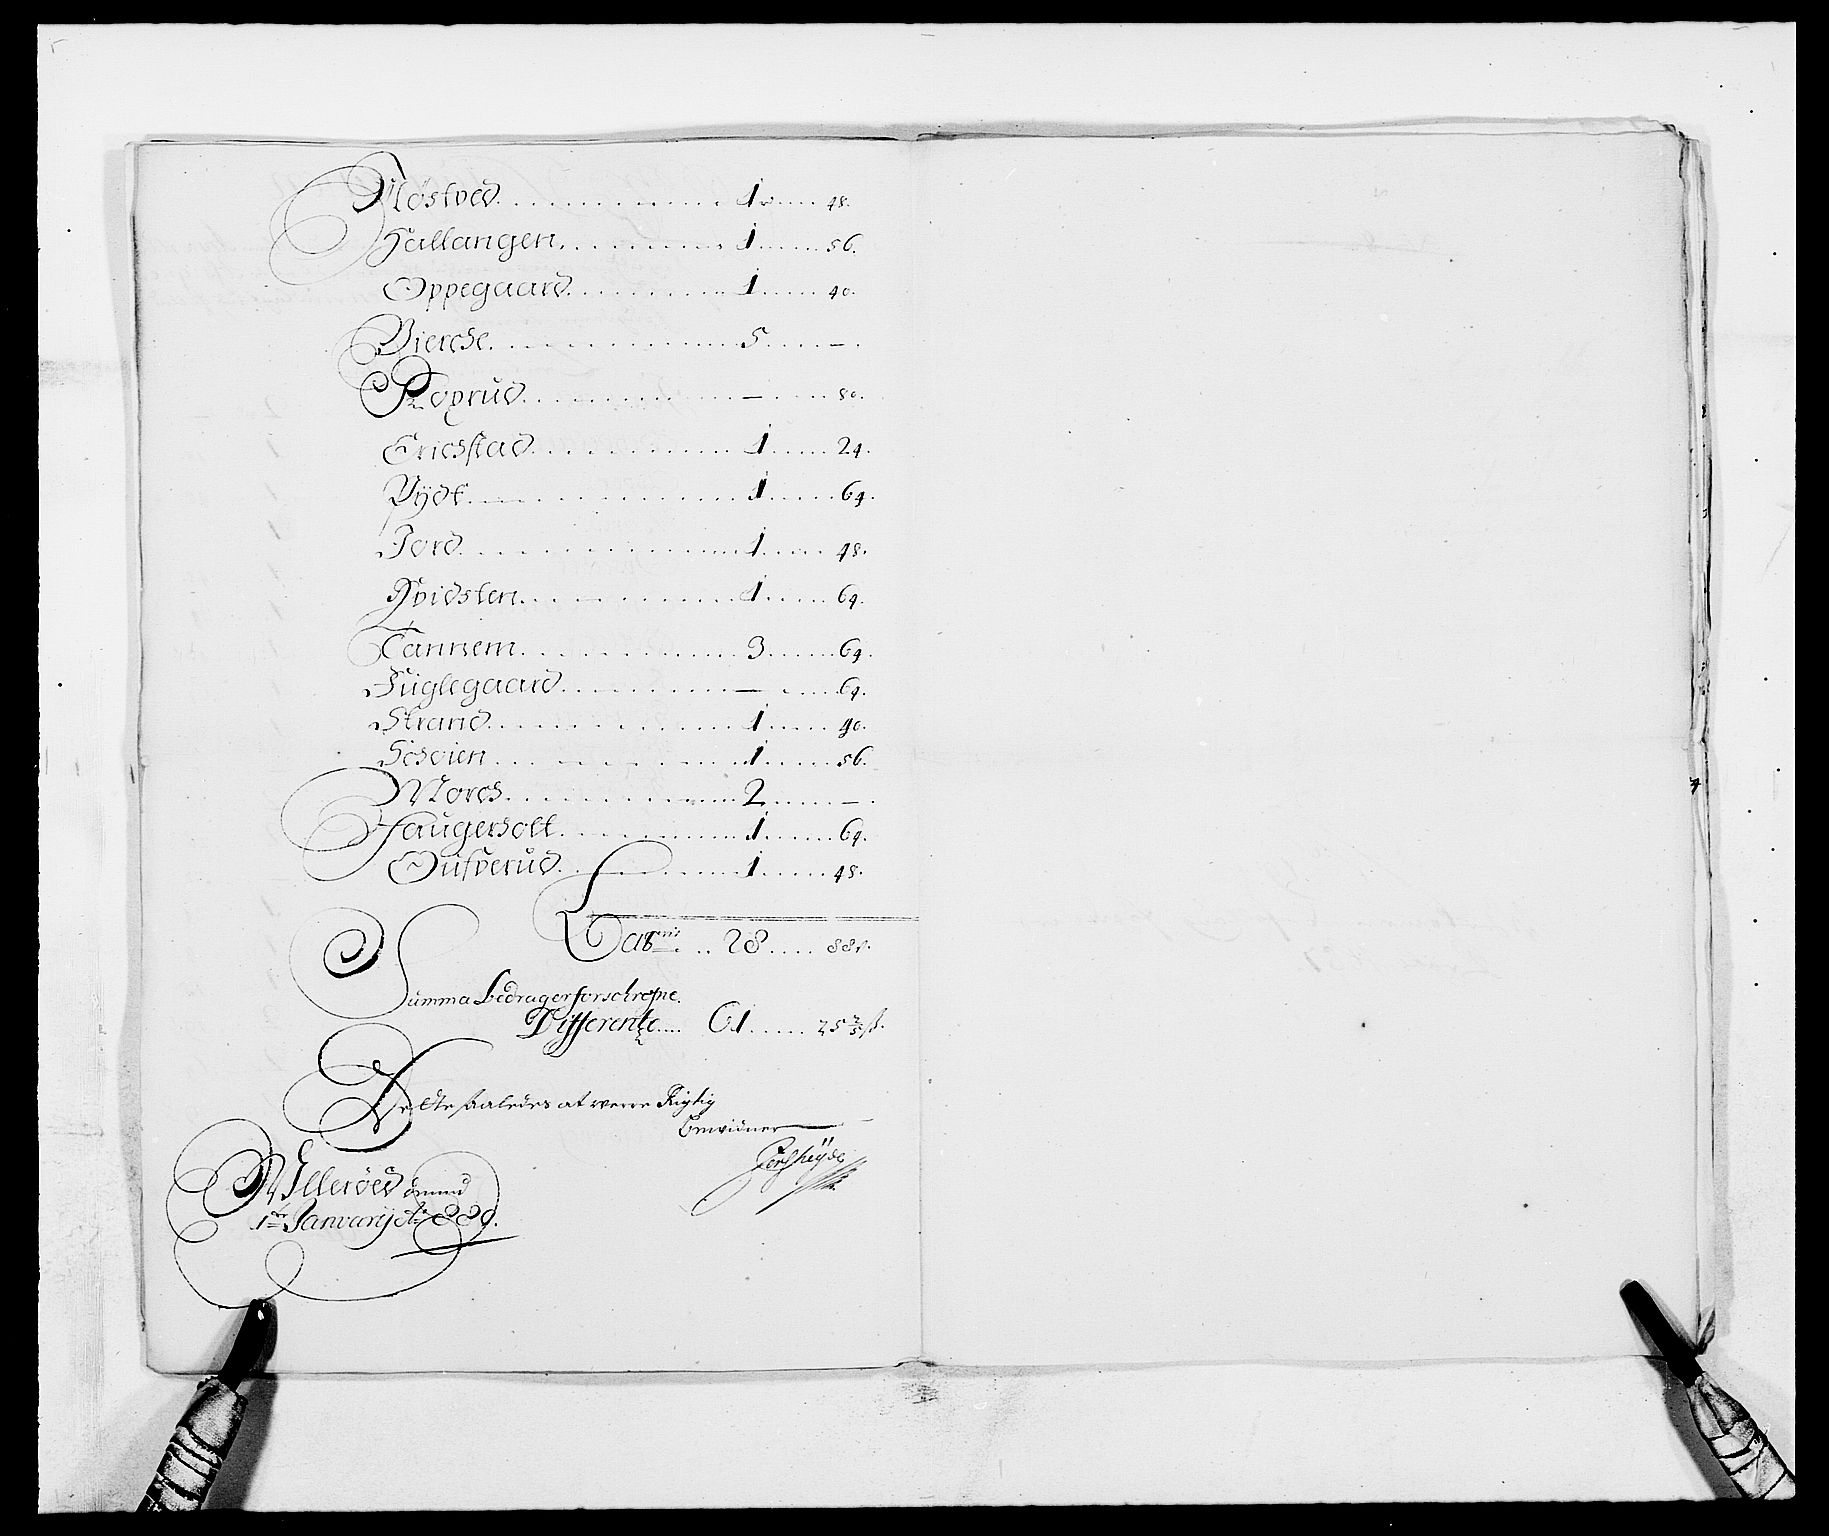 Nøstved 1 48.
Hallangen 1 56.
Oppegaard 1 40.
Bierche 5 —.
Koprud — 80.
Erichstad 1 24.
Pydt 1 64.
Jord 1 48.
Hvidsten 1 64.
Tannem 3 64.
Fuglegaard — 64.
Strand 1 40.
Schvien 1 56.
Morch 2 —.
Haugersoll 1 64.
Oufverud 1 48.
Lateris 28 88
Summa bedrager forschrefne
Differentz 61 25
Dette saaledes at werre Rigtig
bewidner
Hillerøed
1te Januarij Ao